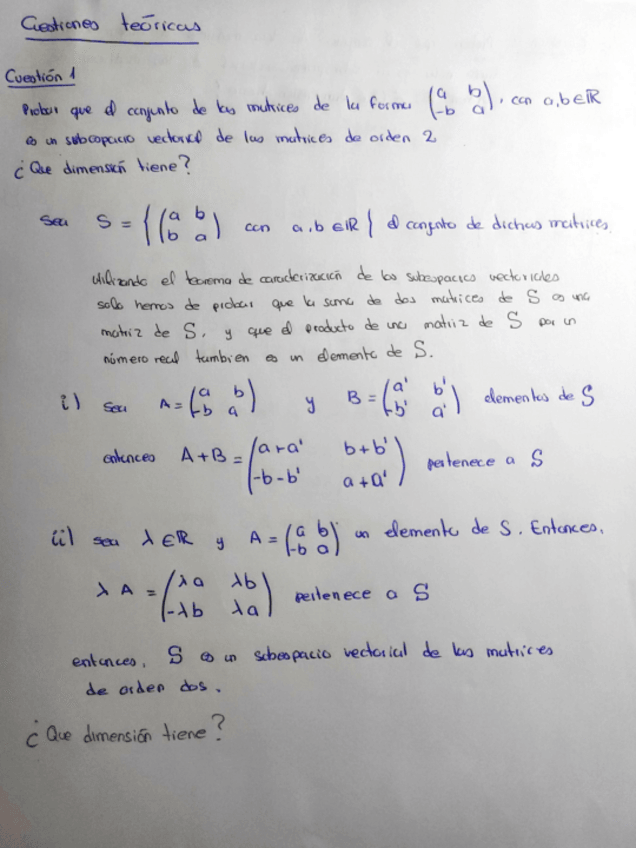 Cuestiones teóricas
Cuestión 1
Probar que el conjunto de las matrices de la forma (a b; -b a), con a,b ∈ ℝ
es un subespacio vectorial de las matrices de orden 2
¿Que dimensión tiene?
sea S = { (a b; b a) con a,b ∈ ℝ } el conjunto de dichas matrices.
utilizando el teorema de caracterización de los subespacios vectoriales
solo hemos de probar que la suma de dos matrices de S es una
matriz de S, y que el producto de una matriz de S por un
número real tambien es un elemento de S.
i) sea A = (a b; -b a) y B = (a' b'; -b' a') elementos de S
entonces A+B = (a+a' b+b'; -b-b' a+a') pertenece a S
ii) sea λ ∈ ℝ y A = (a b; -b a) un elemento de S. Entonces,
λ A = (λa λb; -λb λa) pertenece a S
entonces, S es un subespacio vectorial de las matrices
de orden dos.
¿Que dimensión tiene?